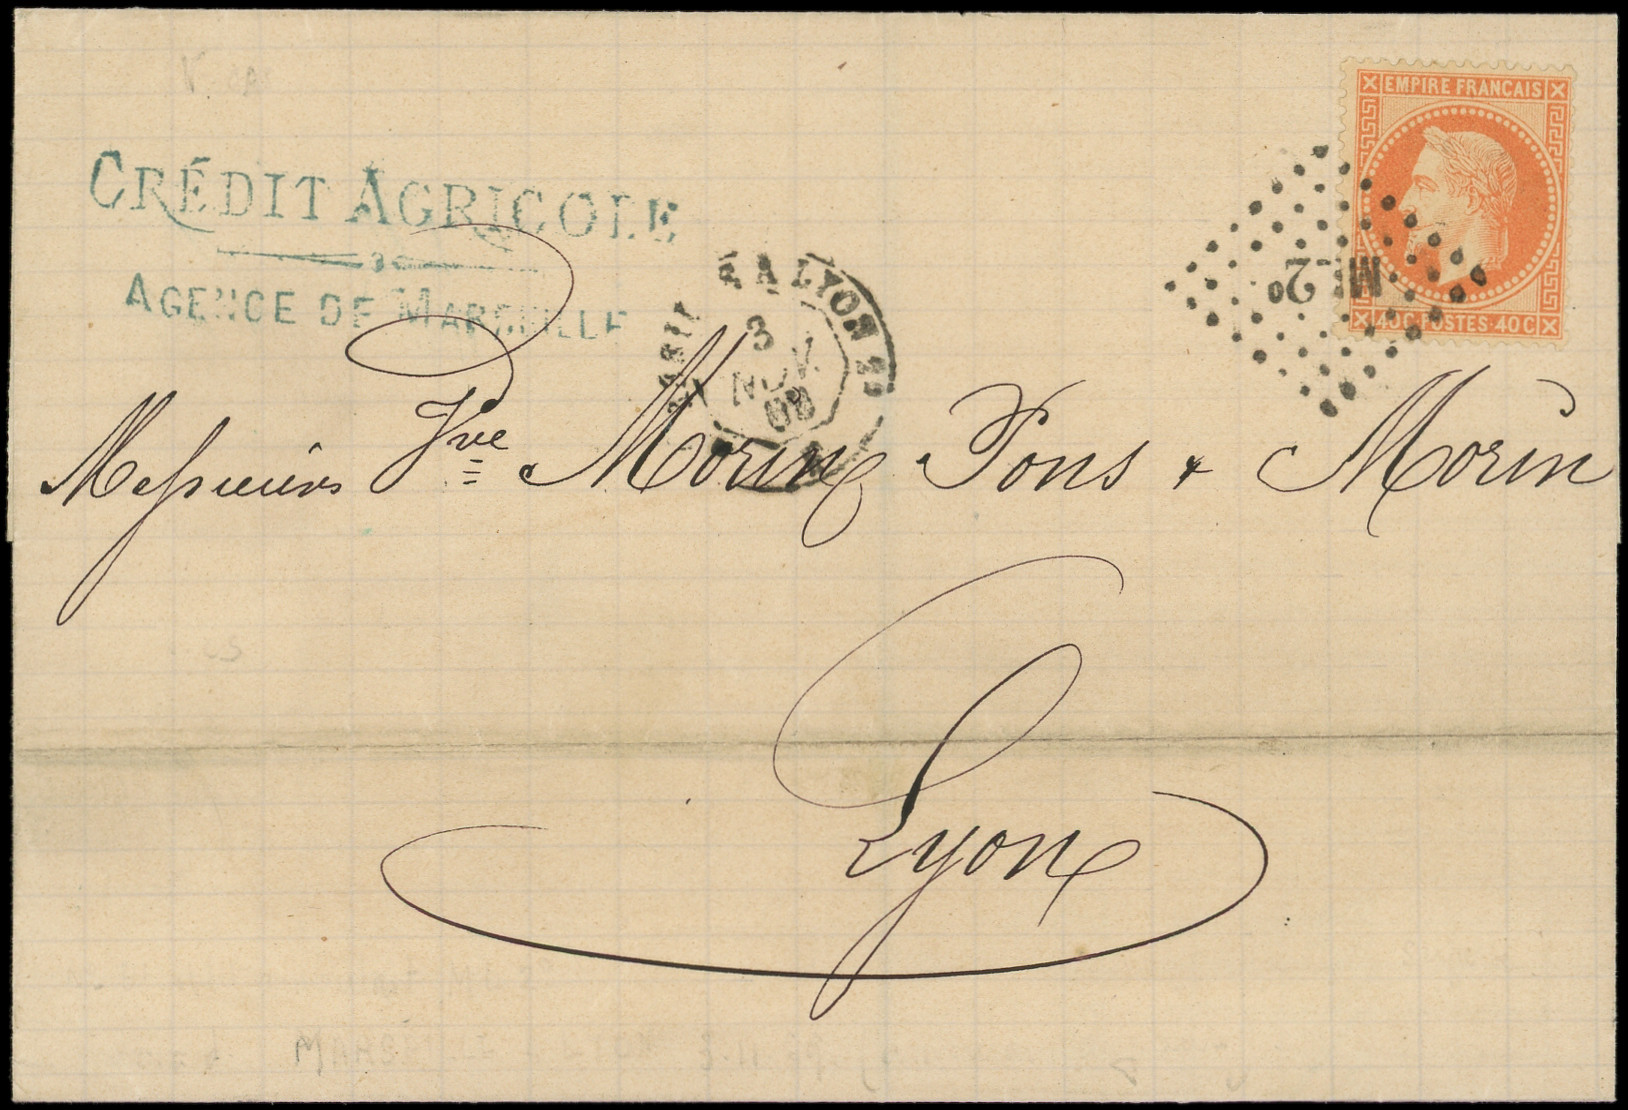 EMPIRE FRANCAIS
40C POSTES 40C
CRÉDIT AGRICOLE
AGENCE DE MARSEILLE
A LYON 2º
3
NOV.
68
ML 2º
Messieurs Vve Morin Pons & Morin
Lyon